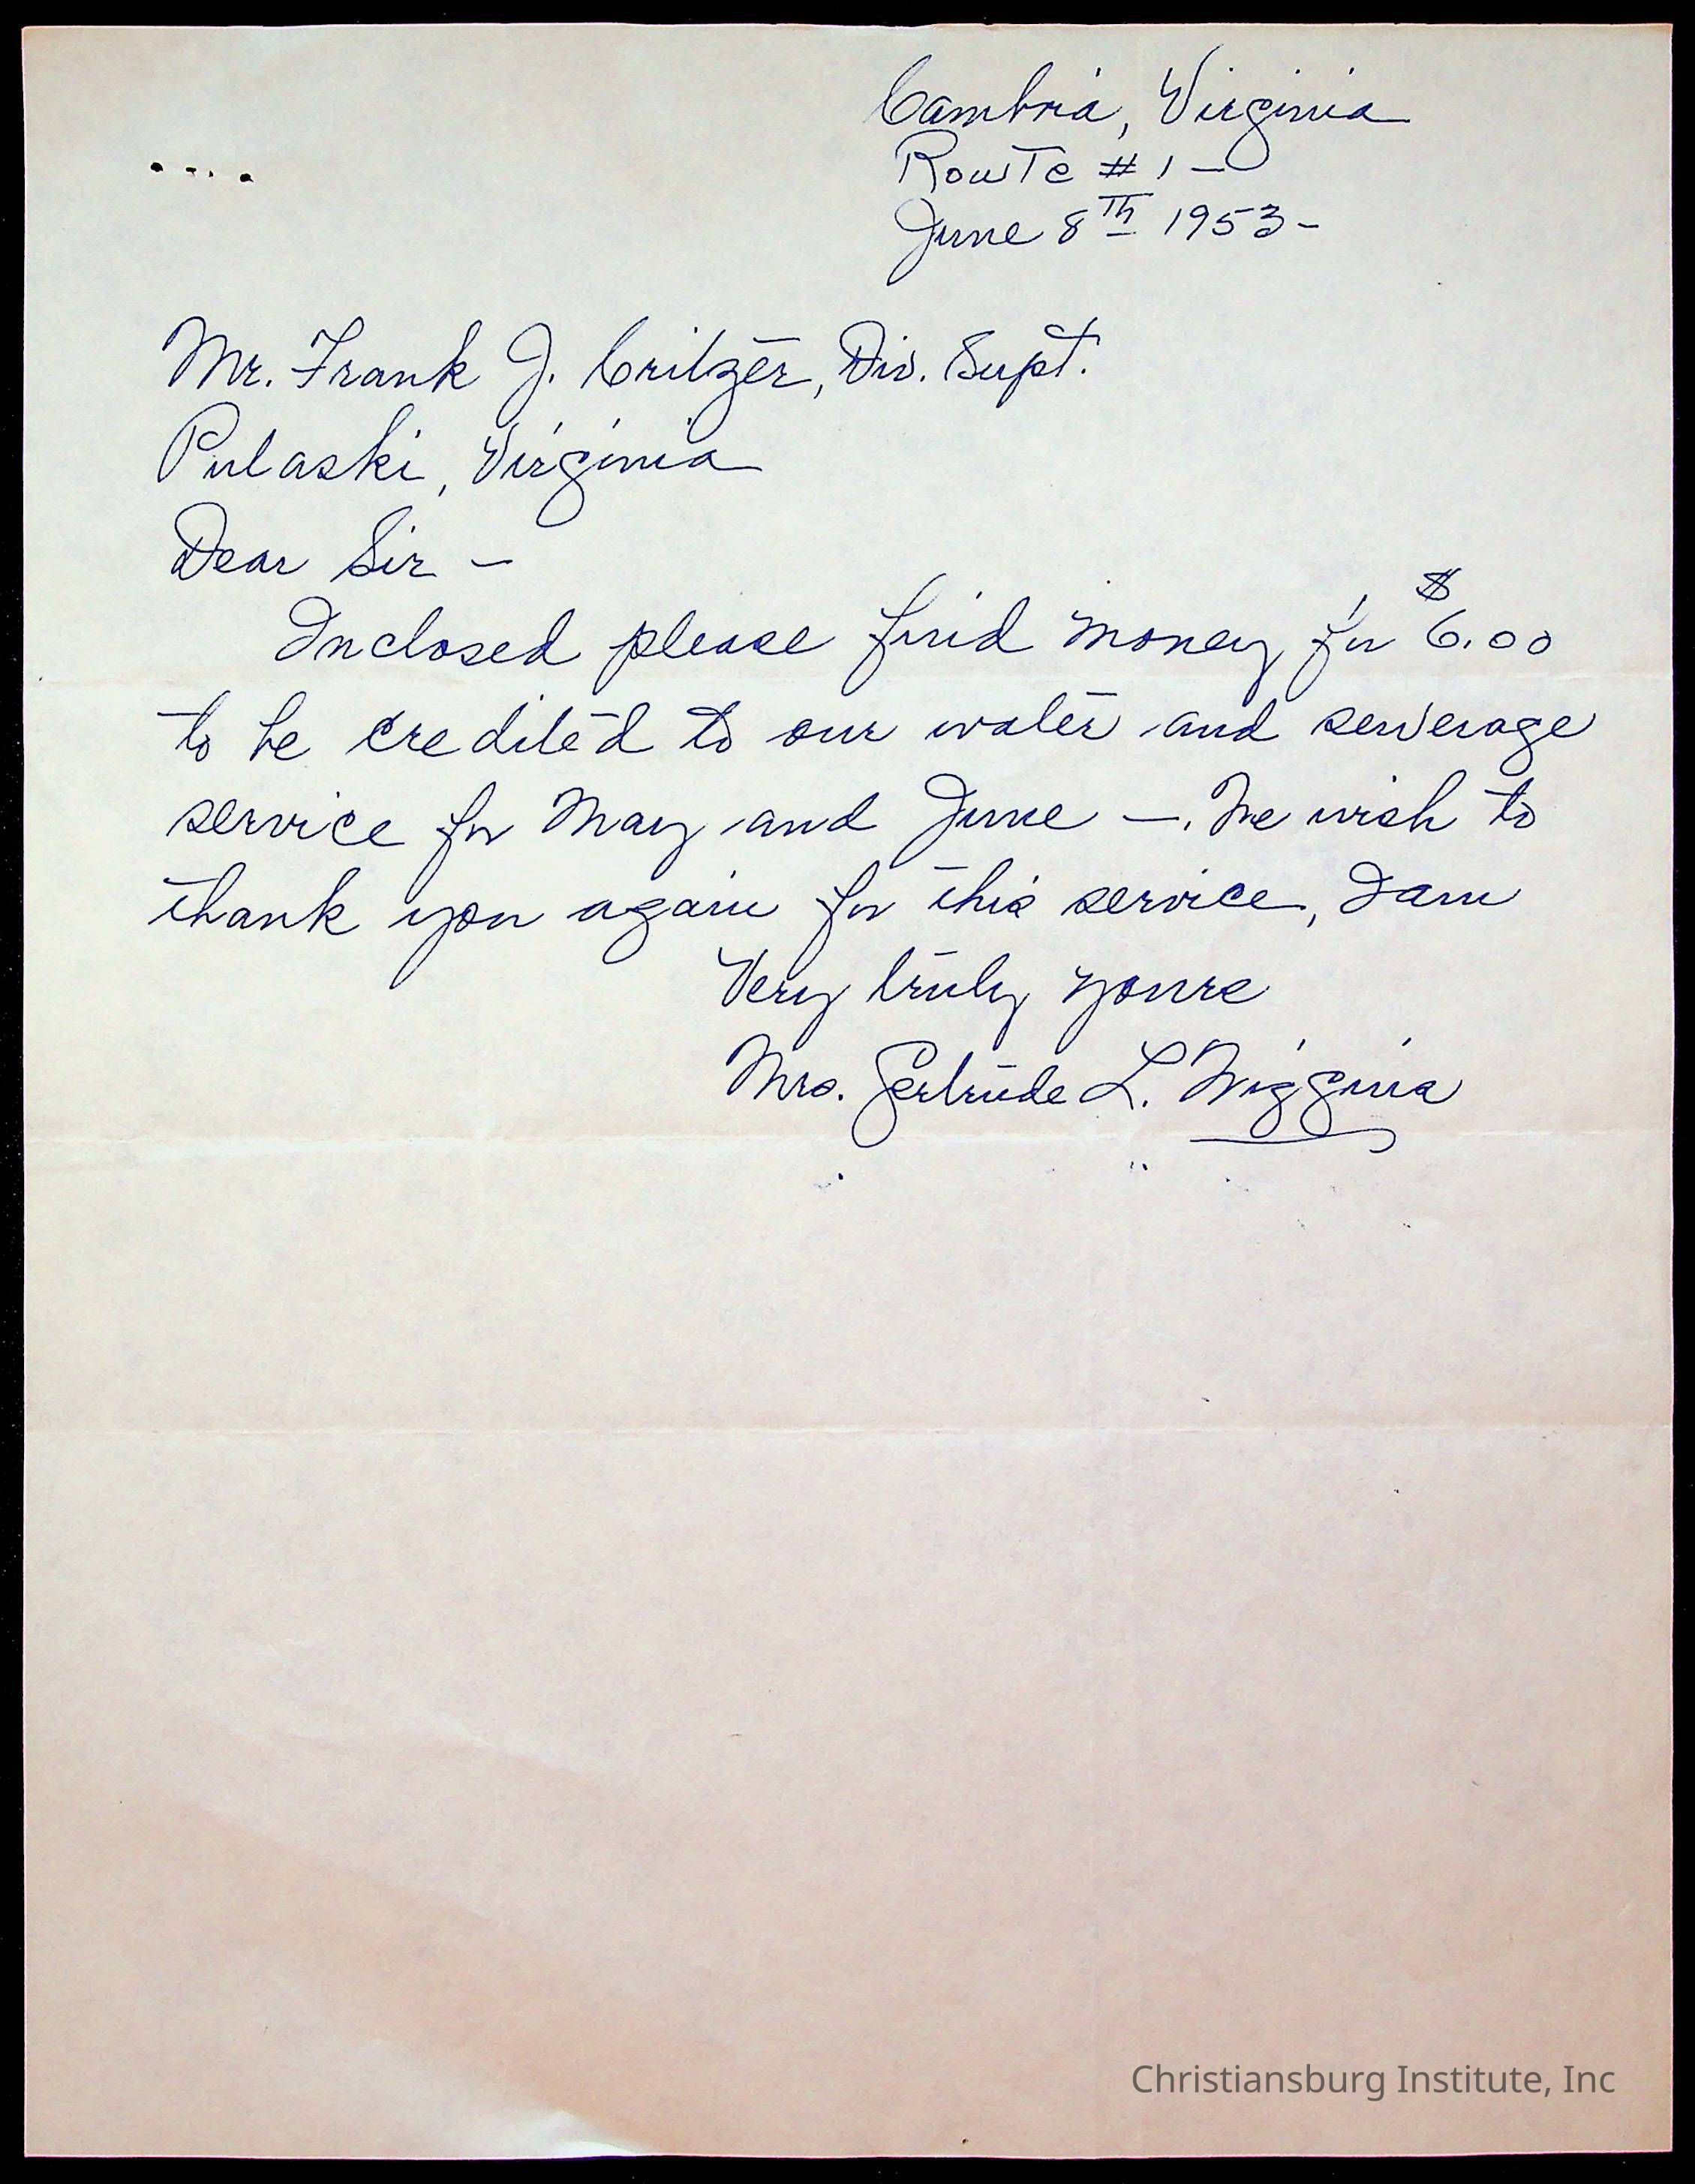 Cambria, Virginia
Route # 1 —
June 8th 1953 -
Mr. Frank J. Critzer, Div. Supt.
Pulaski, Virginia
Dear Sir —
Inclosed please find money for $6.00
to be credited to our water and sewerage
service for May and June —. We wish to
thank you again for this service, I am
Very truly yours
Mrs. Gertrude L. Wiggins
Christiansburg Institute, Inc